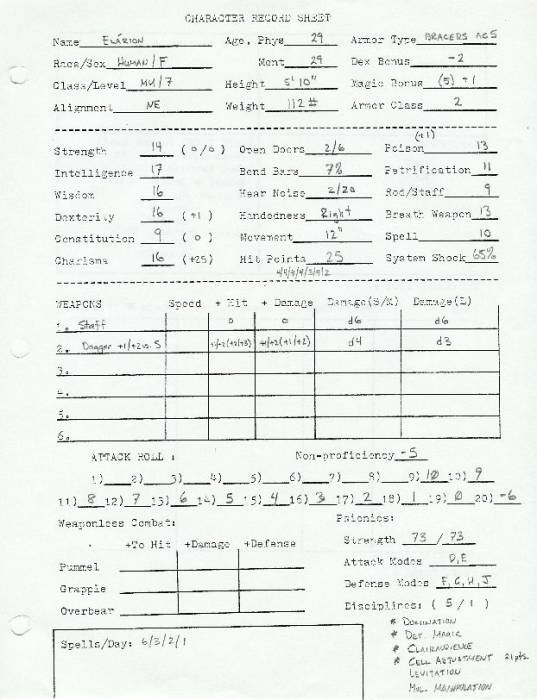 CHARACTER RECORD SHEET
Name ELARION Age, Phys 29 Armor Type BRACERS AC5
Race/Sex HUMAN/F Ment 29 Dex Bonus -2
Class/Level MU/7 Height 5'10" Magic Bonus (5) +1
Alignment NE Weight 112# Armor Class 2
Strength 14 (0/0) Open Doors 2/6 Poison (+1) 13
Intelligence 17 Bend Bars 7% Petrification 11
Wisdom 16 Hear Noise 2/20 Rod/Staff 9
Dexterity 16 (+1) Handedness Right Breath Weapon 13
Constitution 9 (0) Movement 12" Spell 10
Charisma 16 (+25) Hit Points 25 System Shock 65%
WEAPONS Speed + Hit + Damage Damage(S/M) Damage(L)
1. Staff 0 0 d6 d6
2. Dagger +1/+2 vs. S d4 d3
3.
4.
5.
6.
ATTACK ROLL: Non-proficiency -5
1) 2) 3) 4) 5) 6) 7) 8) 9) 10 10) 9
11) 8 12) 7 13) 6 14) 5 15) 4 16) 3 17) 2 18) 1 19) 0 20) -6
Weaponless Combat: Psionics:
+To Hit +Damage +Defense Strength 73 / 73
Pummel Attack Modes D,E
Grapple Defense Modes F,G,H,J
Overbear Disciplines: (5/1)
Spells/Day: 6/3/2/1
* DOMINATION
* DET. MAGIC
* CLAIRAUDIENCE
* CELL ADJUSTMENT 21pts.
LEVITATION
MOL. MANIPULATION